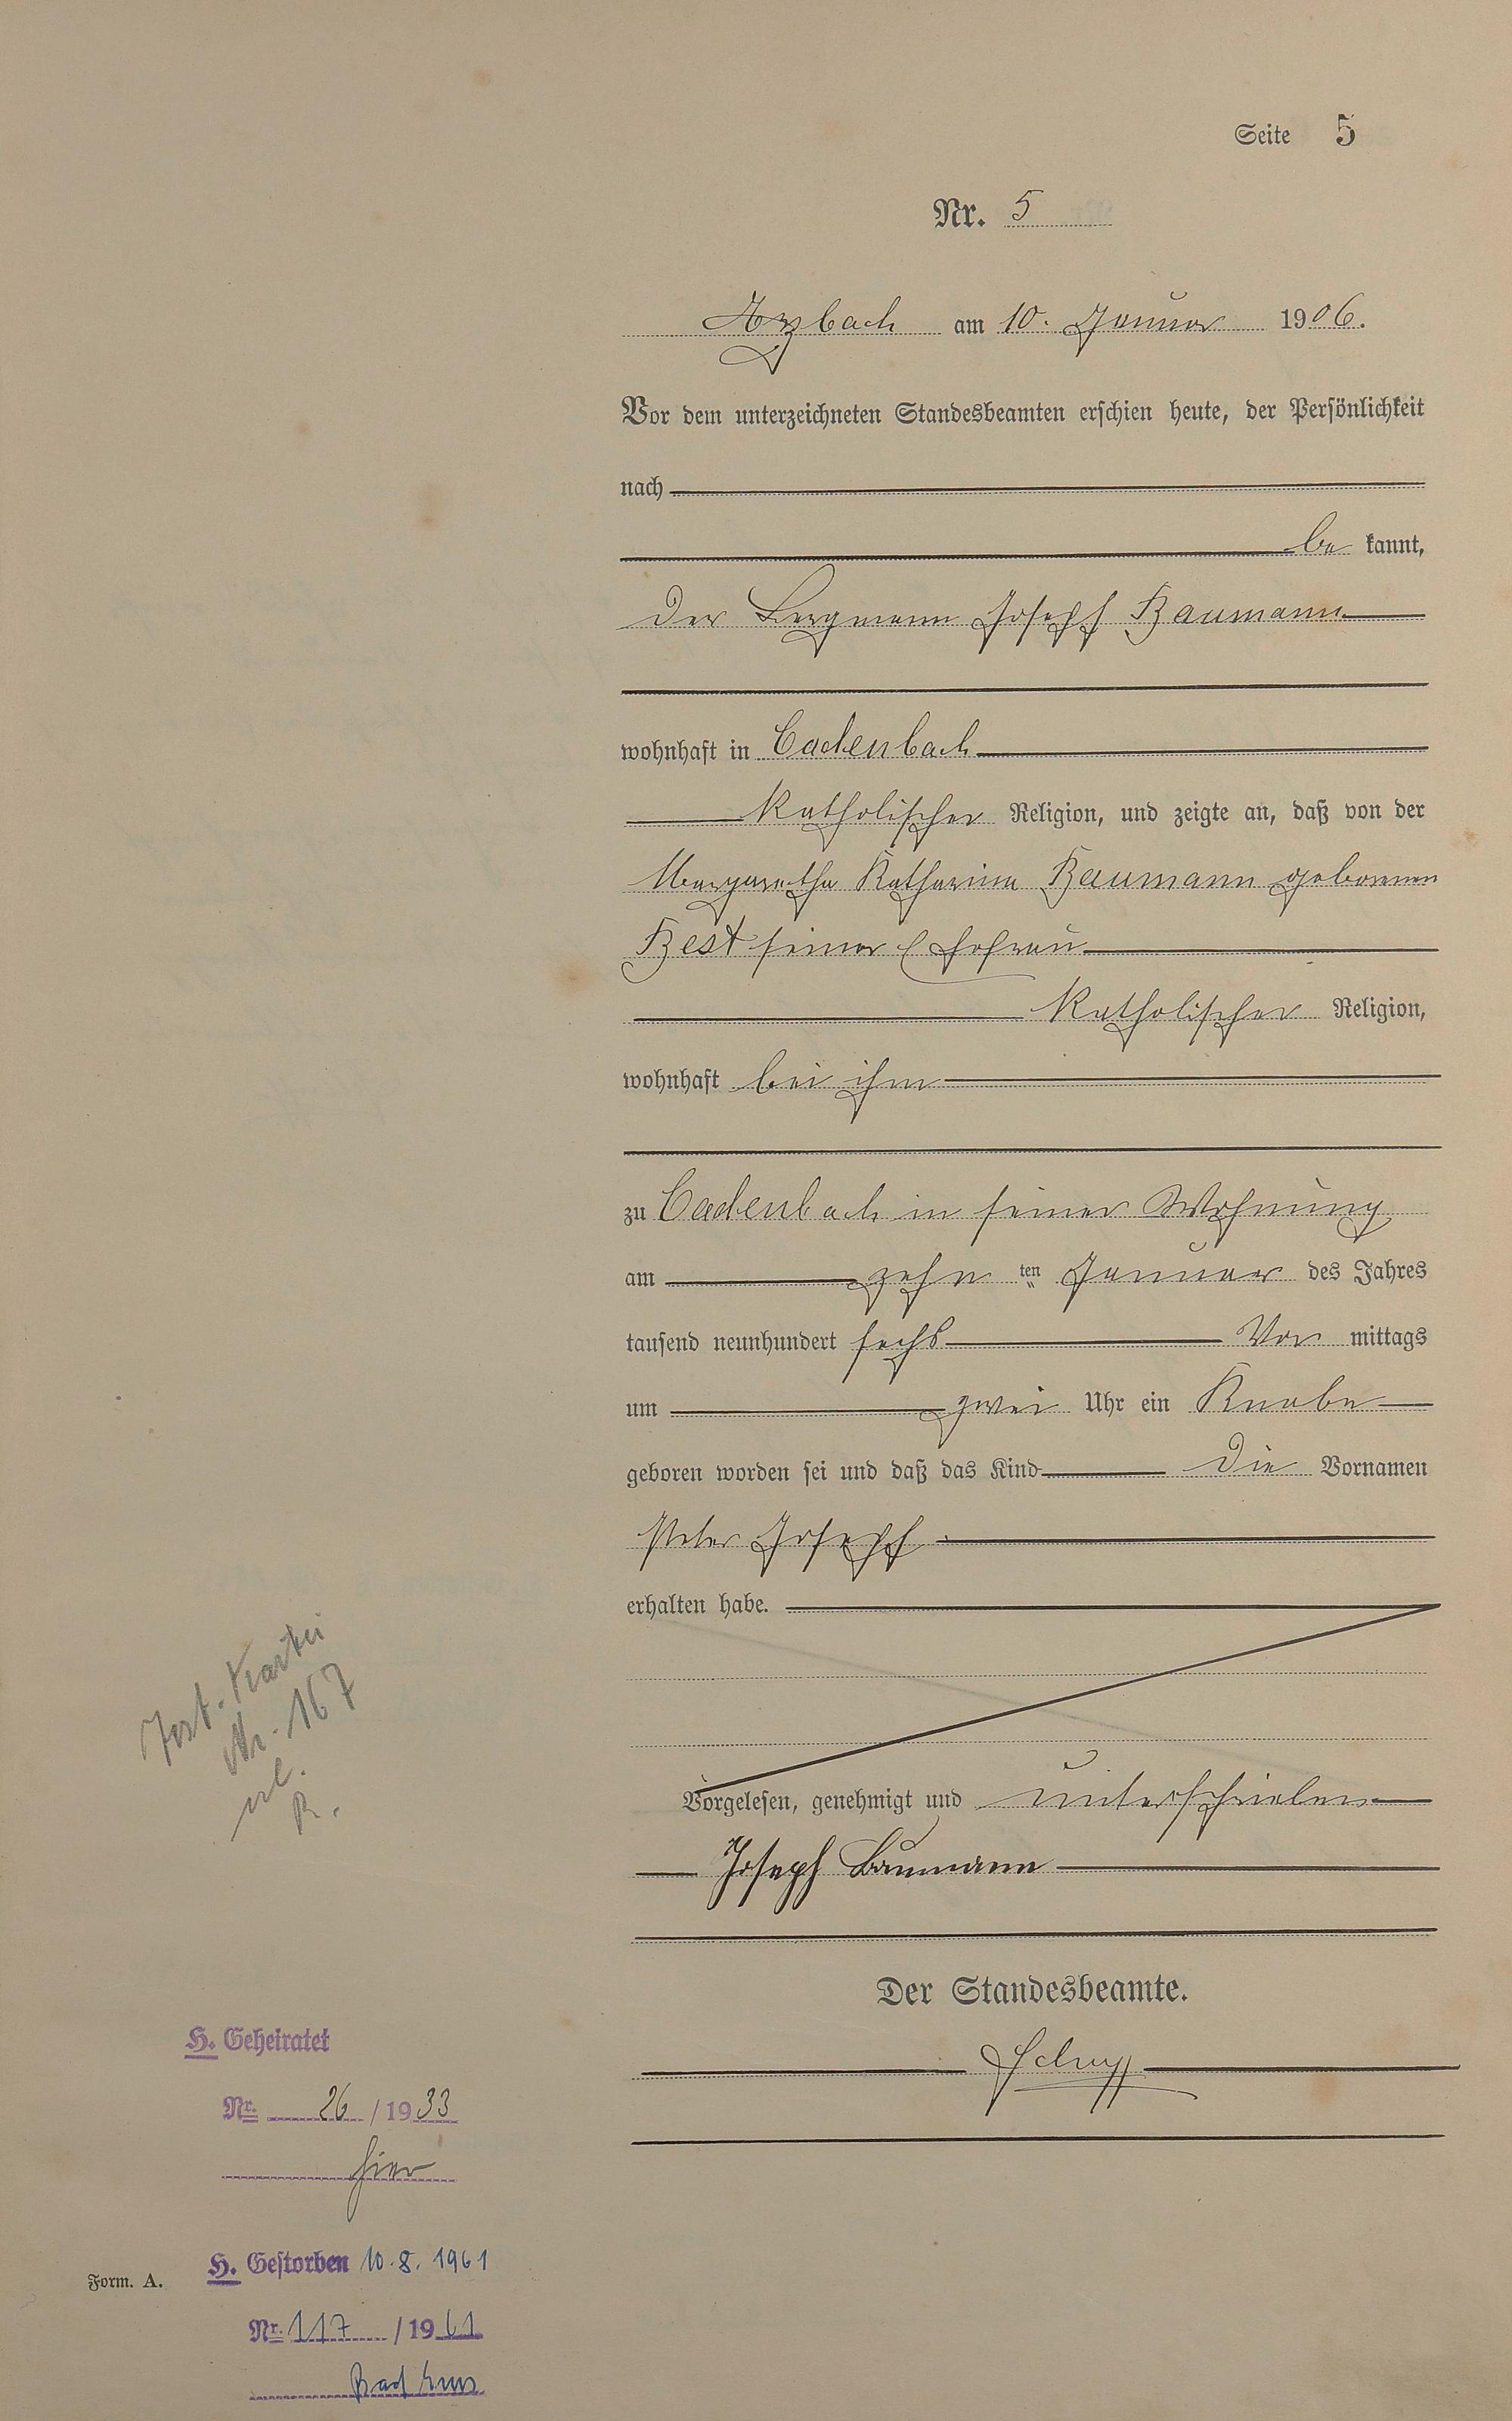 Seite 5
Nr. 5
Arzbach am 10. Januar 1906.
Vor dem unterzeichneten Standesbeamten erschien heute, der Persönlichkeit
nach
be kannt,
der Bergmann Joseph Baumann
wohnhaft in Cadenbach
katholischer Religion, und zeigte an, daß von der
Margaretha Katharina Baumann geborenen
Best seiner Ehefrau
katholischer Religion,
wohnhaft bei ihm
zu Cadenbach in seiner Wohnung
am zehn ten Januar des Jahres
tausend neunhundert sechs Vor mittags
um zwei Uhr ein Knabe
geboren worden sei und daß das Kind die Vornamen
Peter Joseph
erhalten habe.
Vorgelesen, genehmigt und unterschrieben
Joseph Baumann
Der Standesbeamte.
Kartei
Nr. 167
H. Geheiratet
Nr. 26 / 1933
hier
H. Gestorben 10.8.1961
Nr. 117 / 1961
Bad Ems
Form. A.